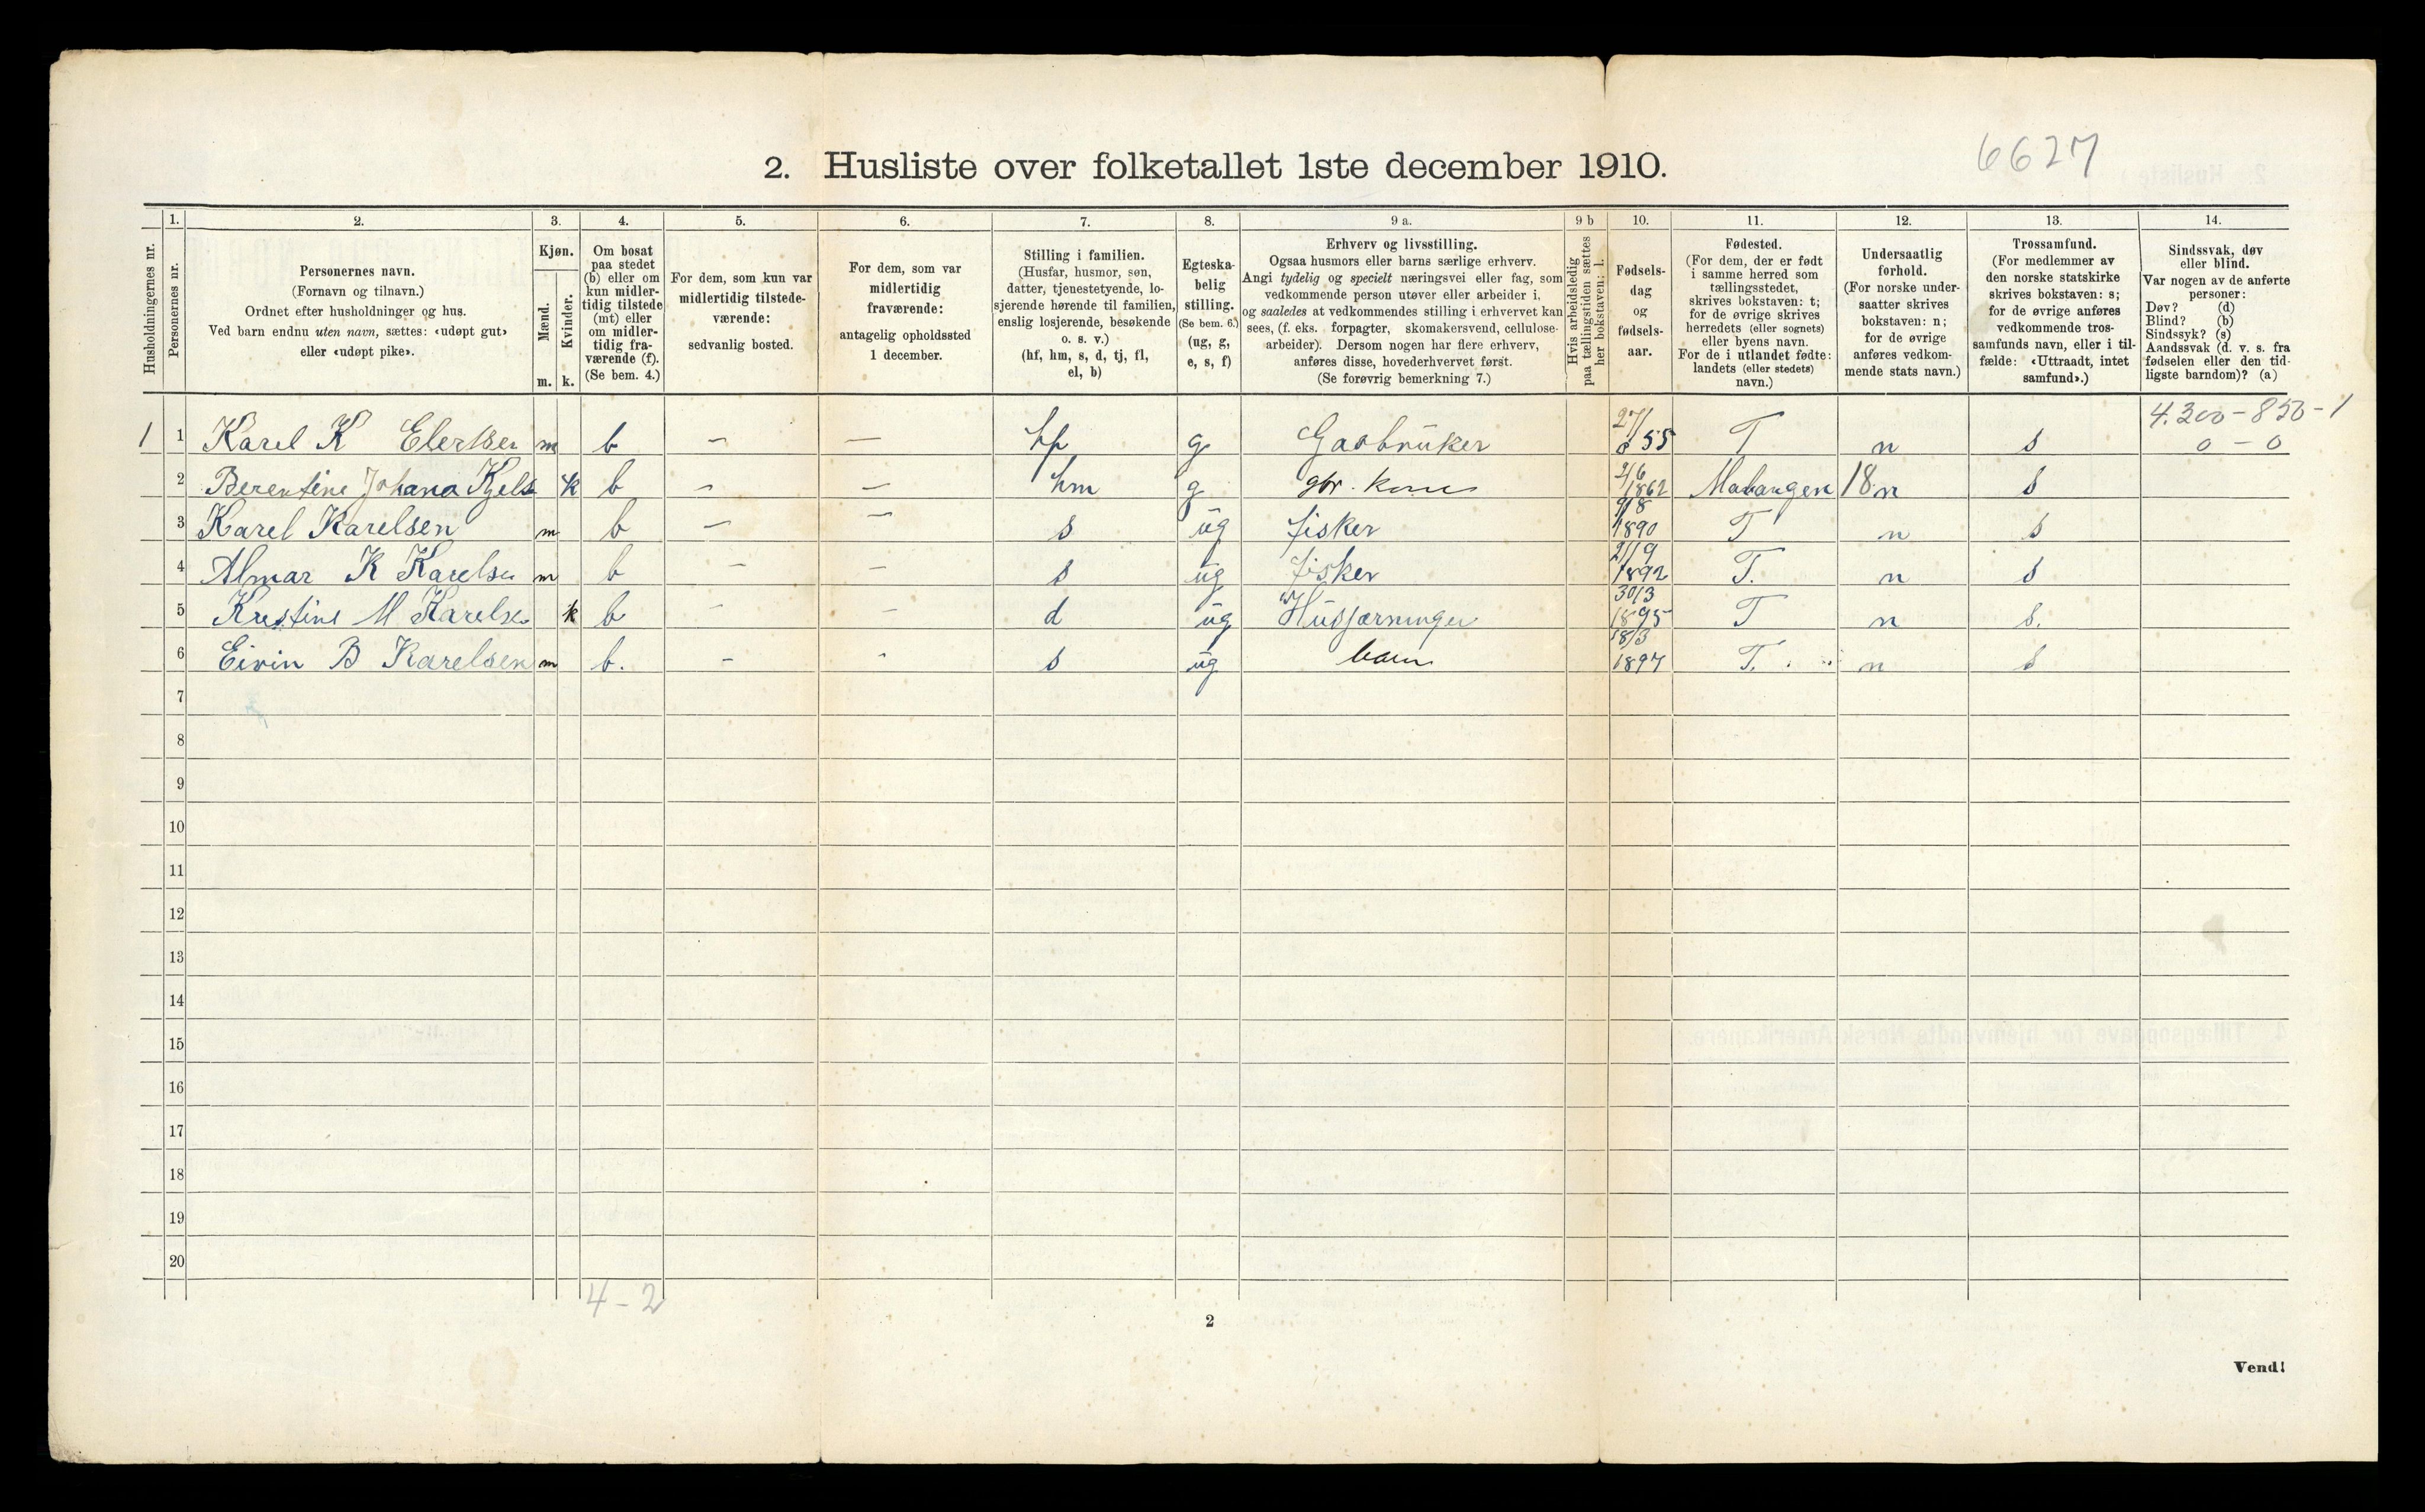 6627
2. Husliste over folketallet 1ste december 1910.
Husholdningernes nr.
1.
Personernes nr.
2.
Personernes navn.
(Fornavn og tilnavn.)
Ordnet efter husholdninger og hus.
Ved barn endnu uten navn, sættes: «udøpt gut»
eller «udøpt pike».
3.
Kjøn.
Mænd.
Kvinder.
m. k.
4.
Om bosat
paa stedet
(b) eller om
kun midler-
tidig tilstede
(mt) eller
om midler-
tidig fra-
værende (f).
(Se bem. 4.)
5.
For dem, som kun var
midlertidig tilstede-
værende:
sedvanlig bosted.
6.
For dem, som var
midlertidig
fraværende:
antagelig opholdssted
1 december.
7.
Stilling i familien.
(Husfar, husmor, søn,
datter, tjenestetyende, lo-
sjerende hørende til familien,
enslig losjerende, besøkende
o. s. v.)
(hf, hm, s, d, tj, fl,
el, b)
8.
Egteska-
belig
stilling.
(Se bem. 6.)
(ug, g,
e, s, f)
9 a.
Erhverv og livsstilling.
Ogsaa husmors eller barns særlige erhverv.
Angi tydelig og specielt næringsvei eller fag, som
vedkommende person utøver eller arbeider i,
og saaledes at vedkommendes stilling i erhvervet kan
sees, (f. eks. forpagter, skomakersvend, cellulose-
arbeider). Dersom nogen har flere erhverv,
anføres disse, hovederhvervet først.
(Se forøvrig bemerkning 7.)
9 b
Hvis arbeidsledig
paa tællingstiden sættes
her bokstaven: l.
10.
Fødsels-
dag
og
fødsels-
aar.
11.
Fødested.
(For dem, der er født
i samme herred som
tællingsstedet,
skrives bokstaven: t;
for de øvrige skrives
herredets (eller sognets)
eller byens navn.
For de i utlandet fødte:
landets (eller stedets)
navn.)
12.
Undersaatlig
forhold.
(For norske under-
saatter skrives
bokstaven: n;
for de øvrige
anføres vedkom-
mende stats navn.)
13.
Trossamfund.
(For medlemmer av
den norske statskirke
skrives bokstaven: s;
for de øvrige anføres
vedkommende tros-
samfunds navn, eller i til-
fælde: «Uttraadt, intet
samfund».)
14.
Sindssvak, døv
eller blind.
Var nogen av de anførte
personer:
Døv? (d)
Blind? (b)
Sindssyk? (s)
Aandssvak (d. v. s. fra
fødselen eller den tid-
ligste barndom)? (a)
4.300-850-1
1 1 Karel K Elertsen m b – – hf g Gaobrüker 27/8 55 T n s 0 – 0
2 Berentine Johana Kjels k b – – hm g gbr. kone 2/6 1862 Malangen 18 n s
3 Karel Karelsen m b – – s ug fisker 9/8 1890 T n s
4 Almar K Karelsen m b – – s ug fisker 21/9 1892 T. n s
5 Krestine M Karelse k b – – d ug Husjærninger 30/3 1895 T n s.
6 Eivin B Karelsen m b. – – s ug barn 18/3 1897 T. n s
7
8
9
10
11
12
13
14
15
16
17
18
19
20
4-2
2
Vend!